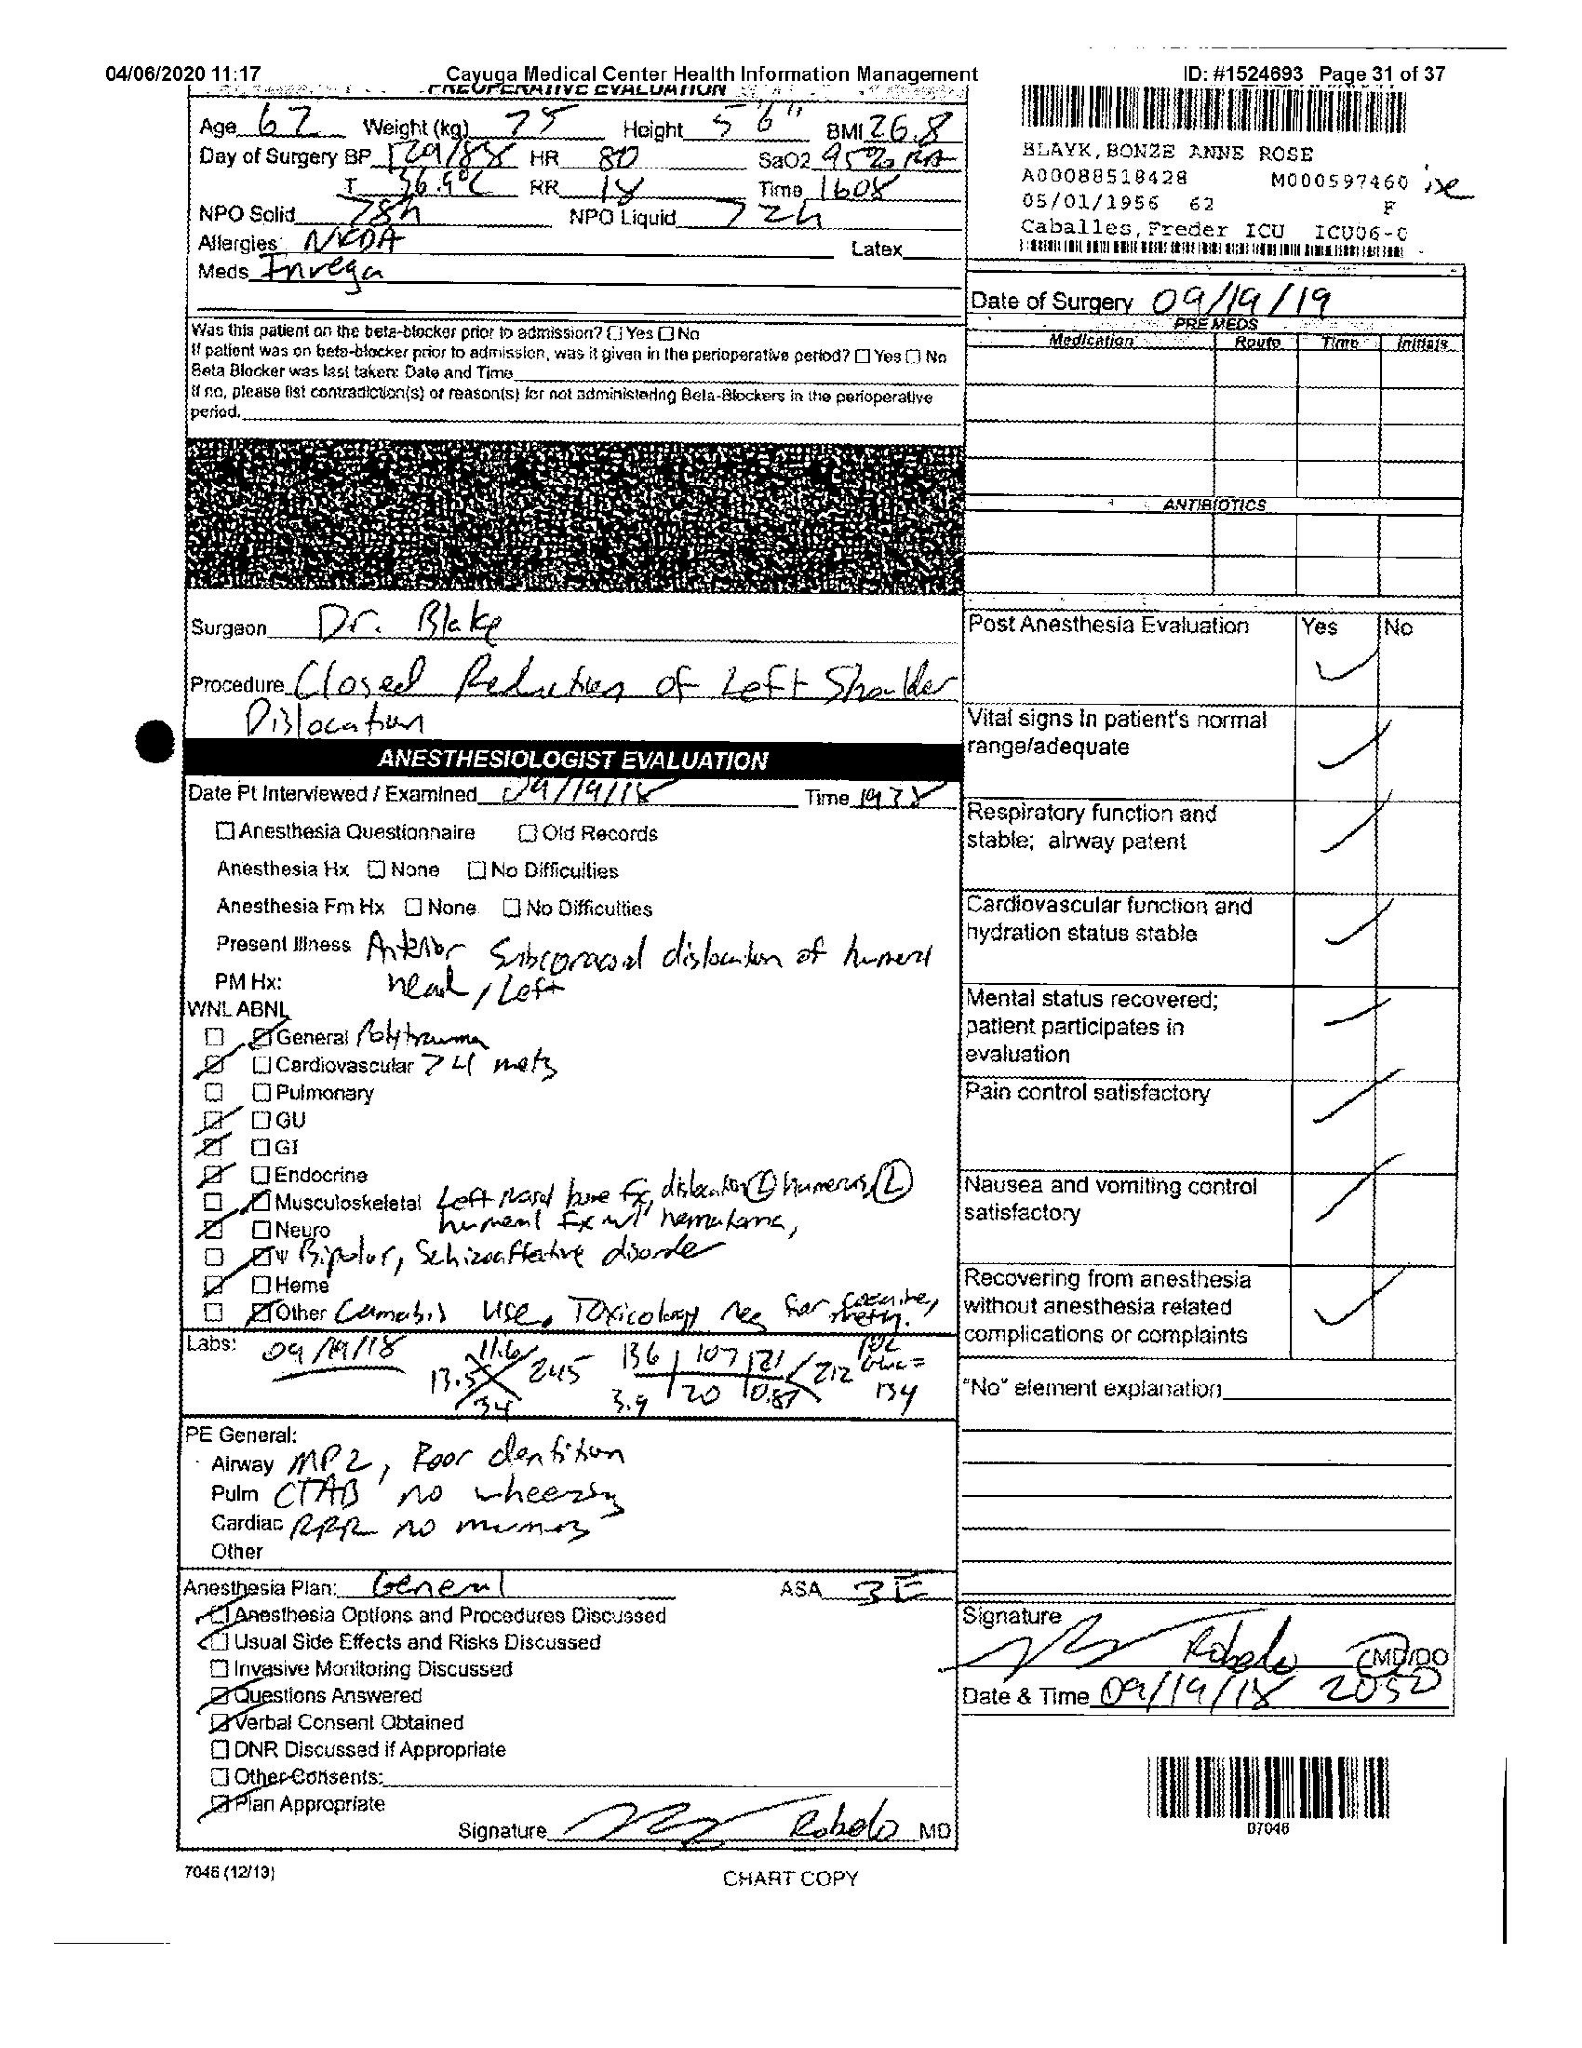 04/06/2020 11:17 Cayuga Medical Center Health Information Management ID: #1524693 Page 31 of 37
PREOPERATIVE EVALUATION
Age 62 Weight (kg) 75 Height 5'6" BMI 26.8
Day of Surgery BP 129/88 HR 80 SaO2 95% RA
T 36.9°C RR 18 Time 1608
NPO Solid 78h NPO Liquid 72h
Allergies NKDA Latex
Meds Invega
Was this patient on the beta-blocker prior to admission? ☐ Yes ☐ No
If patient was on beta-blocker prior to admission, was it given in the perioperative period? ☐ Yes ☐ No
Beta Blocker was last taken: Date and Time
If no, please list contradiction(s) or reason(s) for not administering Beta-Blockers in the perioperative
period.
BLAYK, BONZE ANNE ROSE
A00088518428 M000597460
05/01/1956 62 F
Caballes, Freder ICU ICU06-C
Date of Surgery 09/19/19
PRE MEDS
Medication Route Time Initials
ANTIBIOTICS
Surgeon Dr. Blake
Procedure Closed Reduction of Left Shoulder
Dislocation
ANESTHESIOLOGIST EVALUATION
Date Pt Interviewed / Examined 09/19/18 Time 1938
☐ Anesthesia Questionnaire ☐ Old Records
Anesthesia Hx ☐ None ☐ No Difficulties
Anesthesia Fm Hx ☐ None ☐ No Difficulties
Present Illness Anterior Subcoracoid dislocation of humeral
PM Hx: head, Left
WNL ABNL
☐ ☑ General Polytrauma
☑ ☐ Cardiovascular >4 mets
☐ ☐ Pulmonary
☑ ☐ GU
☑ ☐ GI
☑ ☐ Endocrine
☐ ☑ Musculoskeletal Left Nasal bone Fx, dislocation Ⓛ humerus, Ⓛ
☑ ☐ Neuro humeral Fx w/ hematoma,
☐ ☑ Ψ Bipolar, Schizoaffective disorder
☑ ☐ Heme
☐ ☑ Other Cannabis use. Toxicology neg for cocaine,
meth.
Labs: 09/19/18 13.5 11.6 34 245 136 107 21 212
3.9 20 0.87 Gluc =
134
PE General:
Airway MP2, Poor dentition
Pulm CTAB no wheezing
Cardiac RRR no murmurs
Other
Anesthesia Plan: General ASA 3E
☑ Anesthesia Options and Procedures Discussed
☑ Usual Side Effects and Risks Discussed
☐ Invasive Monitoring Discussed
☑ Questions Answered
☑ Verbal Consent Obtained
☐ DNR Discussed if Appropriate
☐ Other Consents:
☑ Plan Appropriate
Signature Robelo MD
Post Anesthesia Evaluation Yes No
Vital signs in patient's normal
range/adequate
Respiratory function and
stable; airway patent
Cardiovascular function and
hydration status stable
Mental status recovered;
patient participates in
evaluation
Pain control satisfactory
Nausea and vomiting control
satisfactory
Recovering from anesthesia
without anesthesia related
complications or complaints
"No" element explanation
Signature
Robelo MD/DO
Date & Time 09/19/18 2050
D7046
7046 (12/13) CHART COPY